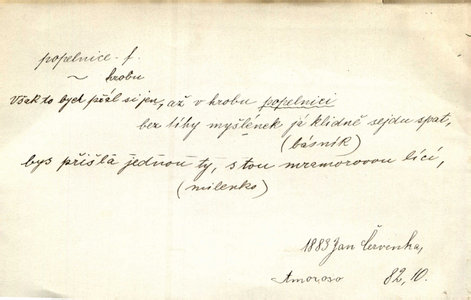 popelnice f.
~ hrobu
Však to bych přál si jen, až v hrobu popelnici
bez tíhy myšlének já klidně sejdu spat,
(básník)
bys přišla jednou ty, s tou mramorovou lící,
(milenko)
1883 Jan Červenka,
Amoroso 82, 10.